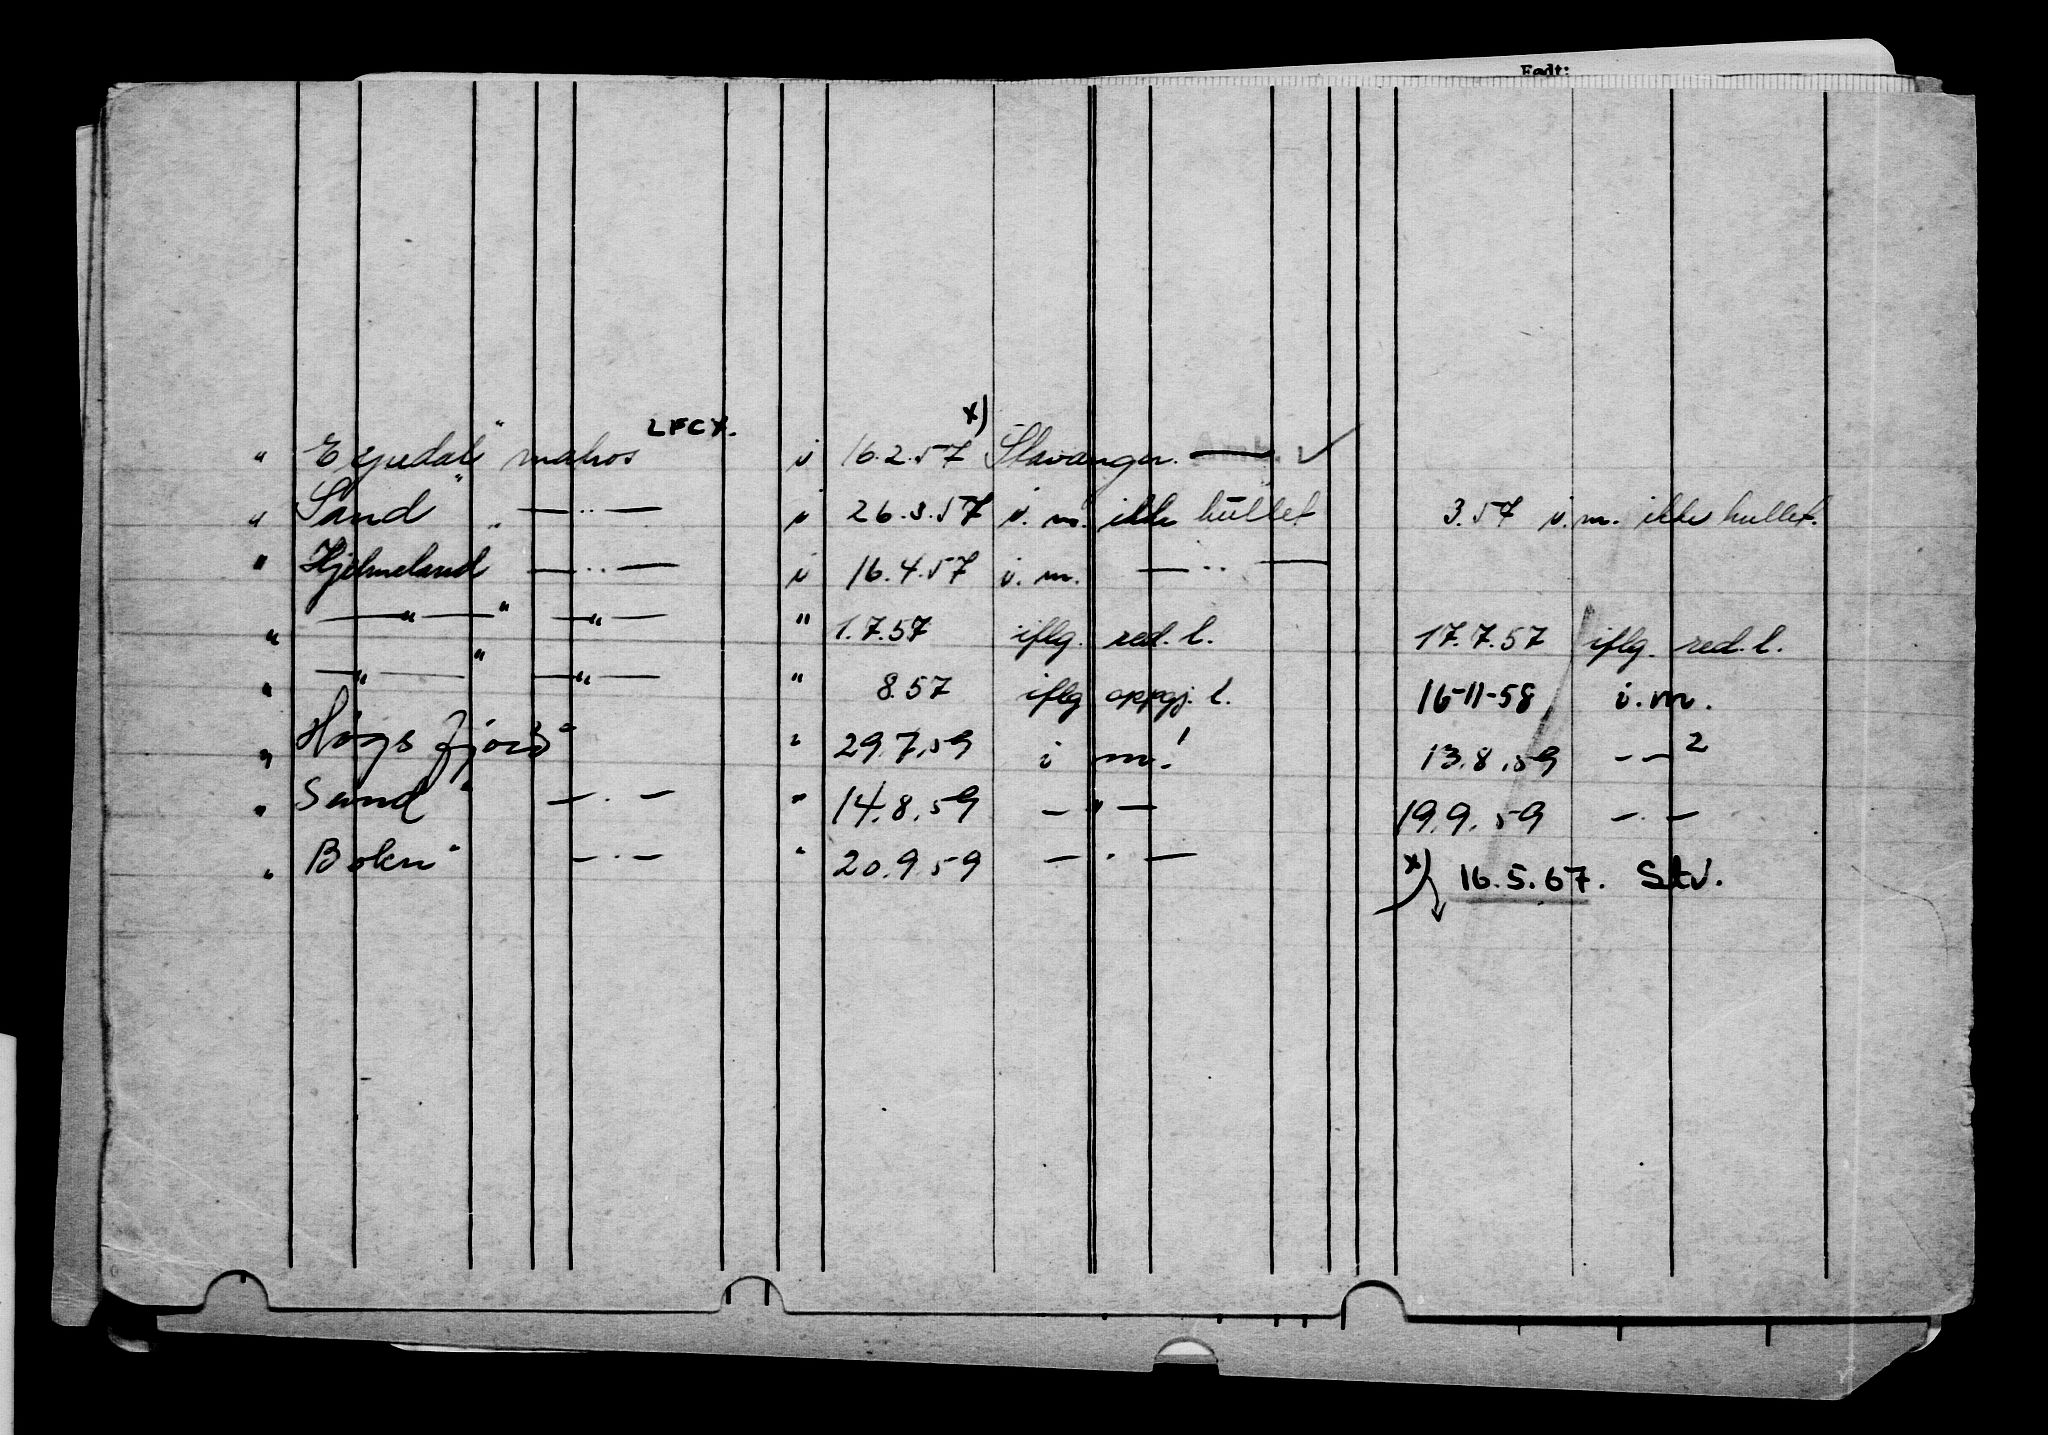 Født:
LFCX. x)
" matros i 16.2.57 Stavanger. — ✓
" Sand" — " — i 26.3.57 i. m. ikke hullet 3.57 i. m. ikke hullet.
" Hjelmeland — " — i 16.4.57 i. m. — " —
" — " — " — " — " 1.7.57 iflg. red. l. 17.7.57 iflg. red. l.
" — " — " — " — " 8.57 iflg oppgj. l. 16-11-58 i. m.
" Høgsfjord" " 29.7.59 i m! 13.8.59 — — 2
" Sand" — . — " 14.8.59 — " — 19.9.59 — . —
" Bokn" — . — " 20.9 59 — . — x) 16.5.67. Stv.